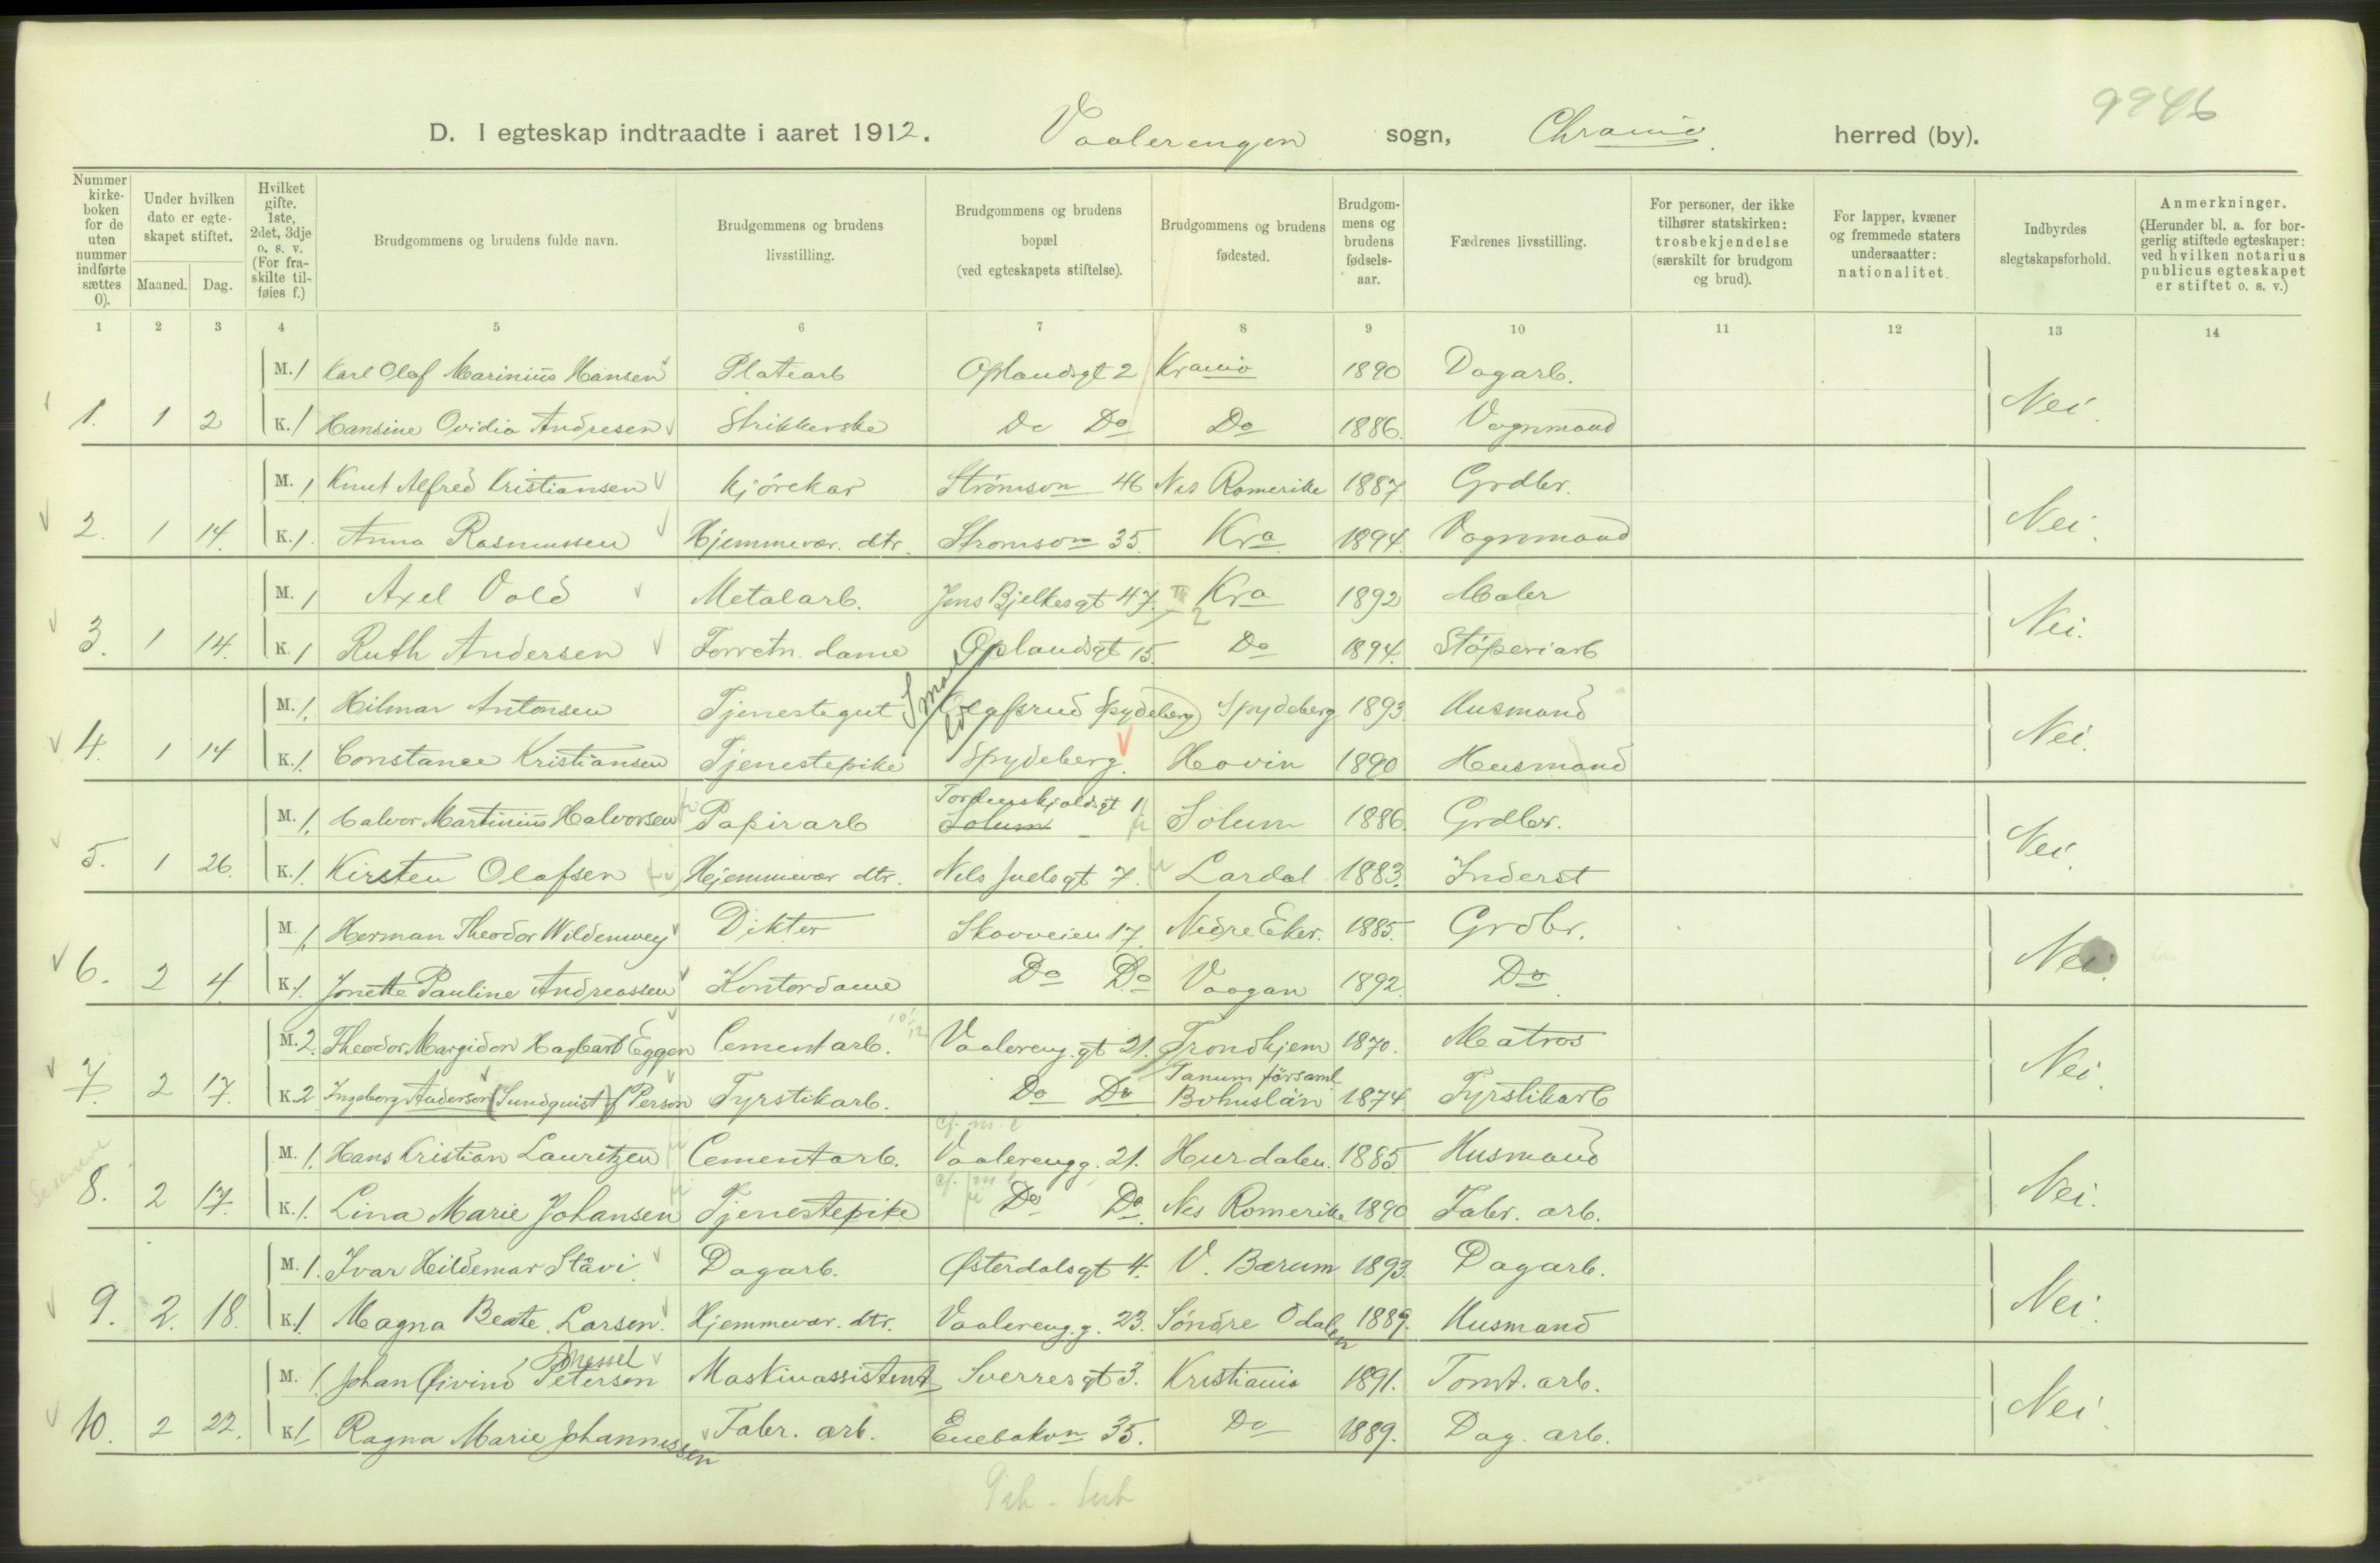 9946
D. I egteskap indtraadte i aaret 1912. Vaalerengen sogn, Chrania. herred (by).
Nummer kirkeboken for de uten nummer indførte sættes 0).
Under hvilken dato er egteskapet stiftet.
Maaned. Dag.
Hvilket gifte. 1ste, 2det, 3dje o. s. v. (For fraskilte tilføies f.)
Brudgommens og brudens fulde navn.
Brudgommens og brudens livsstilling.
Brudgommens og brudens bopæl (ved egteskapets stiftelse).
Brudgommens og brudens fødested.
Brudgommens og brudens fødselsaar.
Fædrenes livsstilling.
For personer, der ikke tilhører statskirken: trosbekjendelse (særskilt for brudgom og brud).
For lapper, kvæner og fremmede staters undersaatter: nationalitet.
Indbyrdes slegtskapsforhold.
Anmerkninger. (Herunder bl. a. for borgerlig stiftede egteskaper: ved hvilken notarius publicus egteskapet er stiftet o. s. v.)
1 2 3 4 5 6 7 8 9 10 11 12 13 14
M. 1 Karl Olaf Marinius Hansen Platearb Oplandsgt 2 Krania 1890 Dagarb.
1. 1 2 K. 1 Hansine Ovidia Andresen Strikkerske Do Do Do 1886. Vognmand Nei.
M. 1 Knut Alfred Kristiansen Kjørekar Strømsvn 46 Nes Romerike 1887 Grdbr.
2. 1 14. K. 1. Anna Rasmussen Hjemmevær. dtr. Strømsvn 35. Kra 1894. Vognmand Nei.
M. 1 Axel Vold Metalarb. Jens Bjelkesgt 47. III 2 Kra 1892 Maler
3. 1 14. K. 1 Ruth Andersen Forretn. dame Oplandsgt 15. Do 1894. Støperiarb Nei.
M. 1. Hilmar Antonsen Tjenestegut Olafsrud Spydeberg) Spydeberg 1893. Husmand
4. 1 14 K. 1. Constance Kristiansen Tjenestepike Spydeberg. Hovin 1890 Husmand Nei.
M. 1. Halvor Martinius Halvorsen Papirarb Tordenskjoldsgt 1 Solum Solum 1886. Grdbr.
5. 1 26. K. 1. Kirsten Olafsen Hjemmevær dtr. Nils Juelsgt 7. Lardal 1883. Inderst Nei.
M. 1. Herman Theodor Wildenwey Dikter Skovveien 17. Nedre Eker. 1885. Grdbr.
6. 2 4. K. 1. Jonette Pauline Andreassen Kontordame Do Do Vaagan 1892. Do. Nei.
M. 2. Theodor Margidon Hagbart Eggen Cementarb. Vaalereng. gt 21. Trondhjem 1870. Matros
7. 2 17. K. 2 Ingeborg Anderson (Sundquist) f Person Fyrstikarb. Do Do Tanum församl Bohuslän 1874. Fyrstikarb Nei.
M. 1. Hans Kristian Lauritzen Cementarb. Vaalerengg. 21. Hurdalen. 1885. Husmand
8. 2 17. K. 1. Lina Marie Johansen Tjenestepike Do Do. Nes Romerike 1890 Fabr. arb. Nei.
M. 1. Ivar Hildemar Stavi Dagarb. Østerdalsgt 4. V. Bærum 1893. Dagarb.
9. 2. 18. K. 1. Magna Beate Larsen. Hjemmevær. dtr. Vaalereng. g. 23. Søndre Odalen 1889. Husmand Nei.
M. 1. Johan Øivind Messel Petersen Maskinassistent Sverresgt 3. Kristiania 1891. Tomt. arb.
10. 2 22. K. 1. Ragna Marie Johannessen Fabr. arb. Enebakvn 35. Do 1889. Dag. arb. Nei.